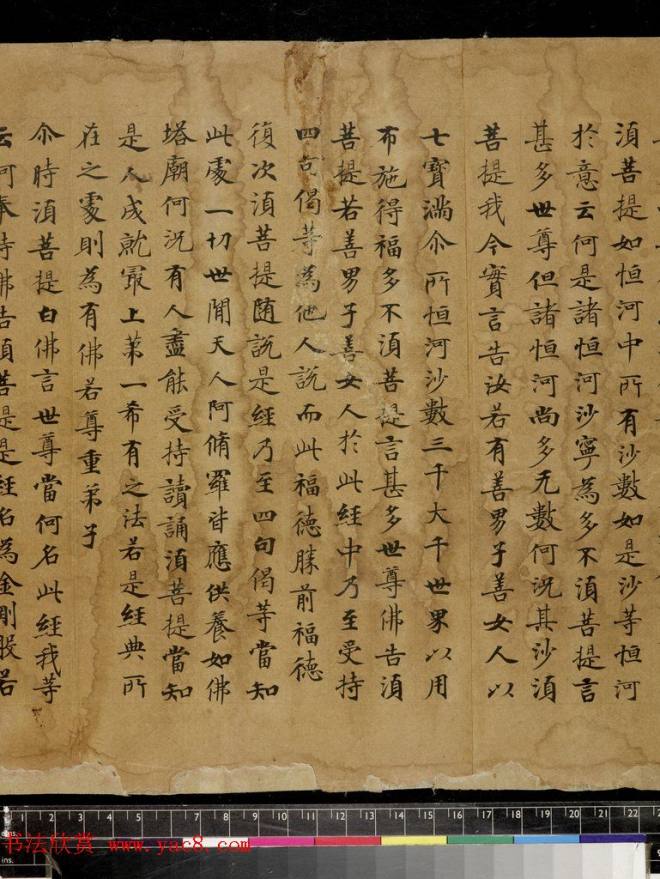 湏菩提如恒河中所有沙數如是沙等恒河
於意云何是諸恒河沙寧為多不湏菩提言
甚多世尊但諸恒河尚多无數何況其沙湏
菩提我今實言告汝若有善男子善女人以
七寶滿尒所恒河沙數三千大千世界以用
布施得福多不湏菩提言甚多世尊佛告湏
菩提若善男子善女人於此經中乃至受持
四句偈等為他人說而此福德勝前福德
復次湏菩提随說是經乃至四句偈等當知
此處一切世間天人阿脩羅皆應供養如佛
塔廟何況有人盡能受持讀誦湏菩提當知
是人成就最上第一希有之法若是經典所
在之處則為有佛若尊重弟子
尒時湏菩提白佛言世尊當何名此經我等
云何奉持佛告湏菩提是經名為金剛般若
1 2 3 4 5 6 7 8 9 10 11 12 13 14 15 16 17 18 19 20 21 22
ins.
书法欣赏 www.yac8.com
ins.